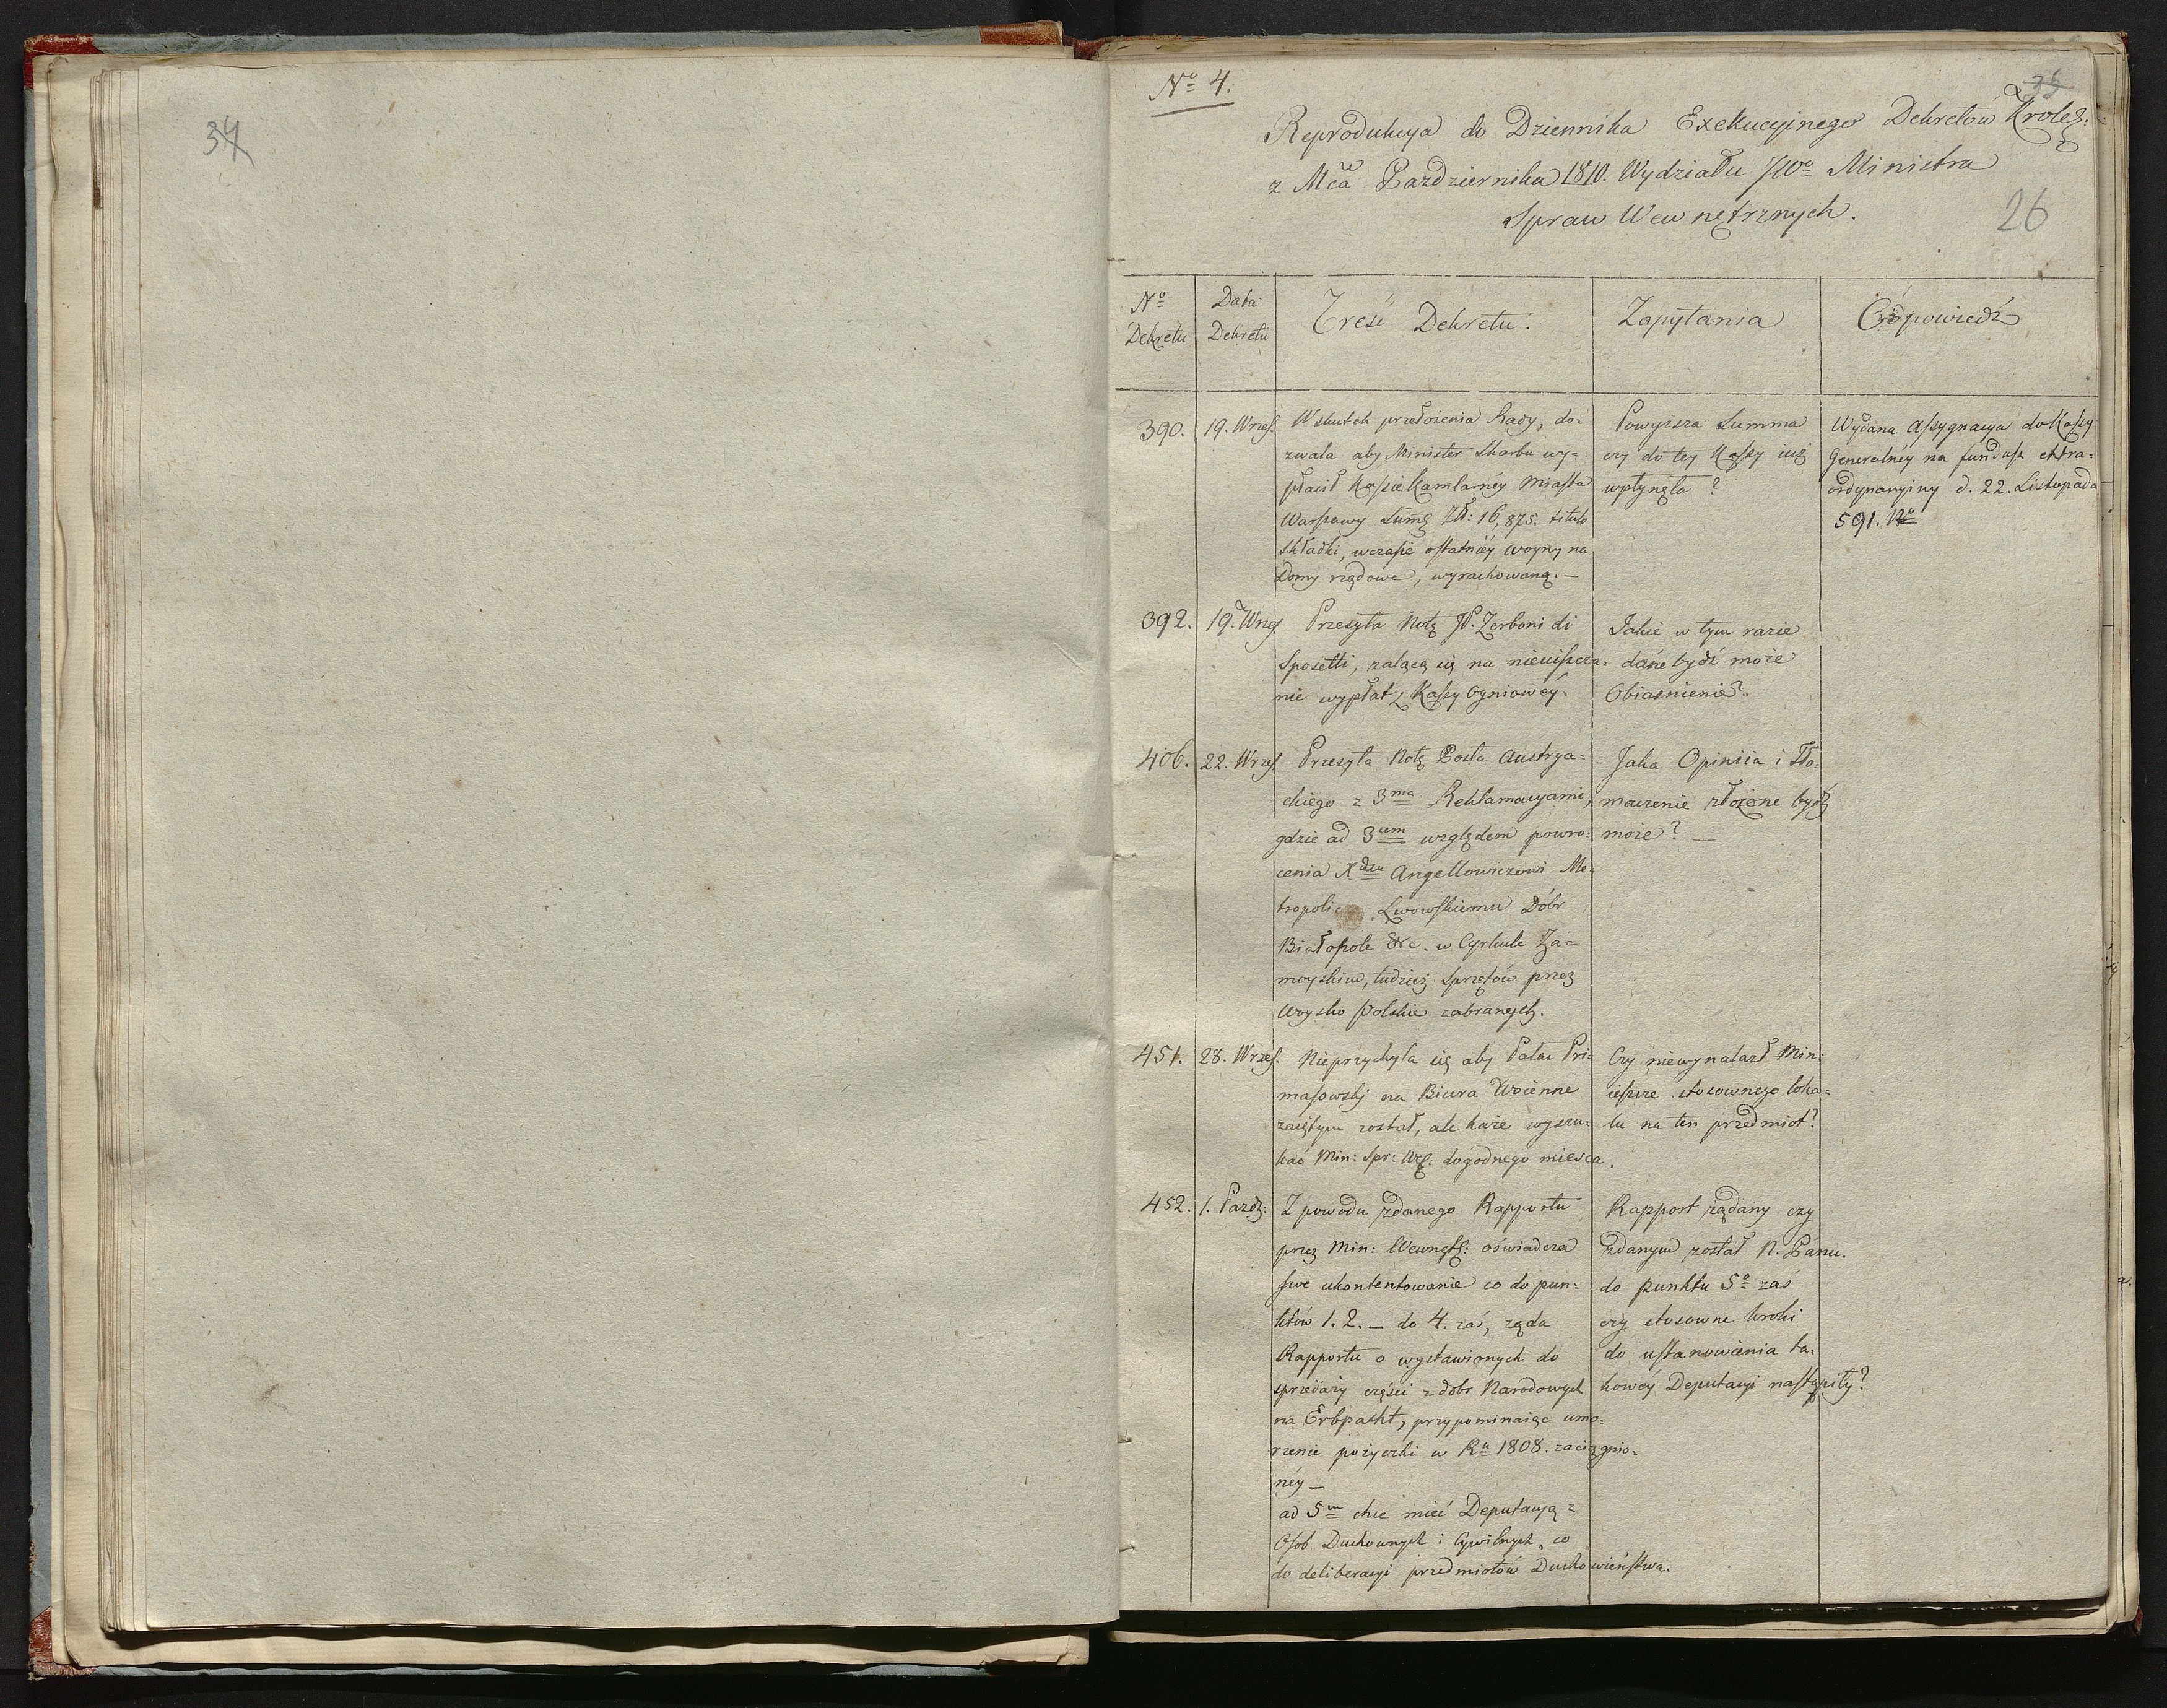 34
Nº 4.
35
Reprodukcya do Dziennika Exekucyjnego Dekretów Królew:
z Mca Pazdziernika 1810. Wydziału JWo Ministra
Spraw Wewnętrznych.
26
No Dekretu
Data Dekretu
Treść Dekretu.
Zapytania
Odpowiedź
390.
19. Wrześ.
Wskutek przełożenia Rady, do-
zwala aby Minister Skarbu wy-
płacił Kassie Kamlarnéy Miasta
Warszawy Summę Zł: 16,875. titulo
składki, wczasie ostatniéy woyny na
Domy rządowe, wyrachowaną. —
Powyższa Summa
czy do tey Kassy iuż
wpłynęła?
Wydana Assygnacya do Kassy
Generalnéy na fundusz extra-
ordynaryiny d. 22. Listopada
591.
392.
19. Wrześ.
Przesyła Notę JP. Zerboni di
Sposetti, żalącą się na nieuiszcza-
nie wypłat z Kassy Ogniowéy.
Jakie w tym razie
dane bydź może
Obiaśnienie?
406.
22. Wrześ.
Przesyła Notę Posła Austrya-
ckiego z 3ma Reklamacyami,
gdzie ad 3um względem powró-
cenia Xdzu Angellowiczowi Me-
tropolicie Lwowskiemu Dóbr
Białopole &c. w Cyrkule Za-
moyskim, tudzież Sprzętów przez
Woysko Polskie zabranych.
Jaka Opiniia i Tło-
maczenie złożone bydź
może? —
451.
28. Wrześ.
Nieprzychyla się aby Pałac Pri-
masowski na Biura Woienne
zaiętym został, ale każe wyszu-
kać Min: Spr: We: dogodnego mieisca.
Czy niewynalazł Min:
ieszcze stosownego loka-
lu na ten przedmiot?
452.
1. Paźdz:
Z powodu zdanego Rapportu
przez Min: Wewnętrz: oświadcza
swe ukontentowanie co do pun-
któw 1. 2. — do 4. zaś, żąda
Rapportu o wystawionych do
sprzedaży części z dobr Narodowych
na Erbpacht, przypominaiąc umo-
rzenie pożyczki w Ru 1808. zaciągnio-
néy —
ad 5m chce mieć Deputacyą z
Osób Duchownych i Cywilnych, co
do deliberacyi przedmiotów Duchowieństwa.
Rapport żądany czy
zdanym został N. Panu.
do punktu 5o zaś
czy stosowne kroki
do ustanowienia ta-
kowéy Deputacyi nastąpiły?